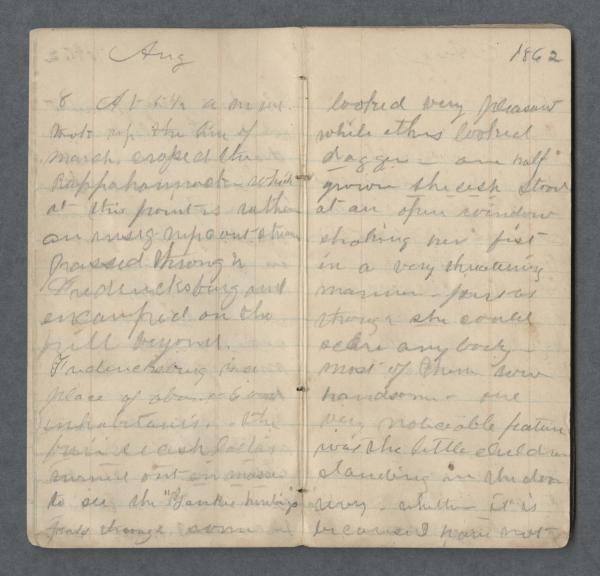 Aug
8 At 5 1/2 a m we
took up the line of
march, crossed the
Rappahannock which
at this point is rather
an insignificant stream
passed through
Fredericksburg and
encamped on the
hill beyond.
Fredericksburg is a
place of about
inhabitants. The
fair secesh ladies
turned out en masse
to see the "Yankee hirelings
pass through some
1862
looked very pleasant
while others looked
daggers – one half
grown shesesh stood
at an open window
shaking her fist
in a very threatening
manner – just as
though she could
scare any body –
most of them were
handsome – one
very noticeable feature
was the little children
standing in the door
way – whether it is
because I have not